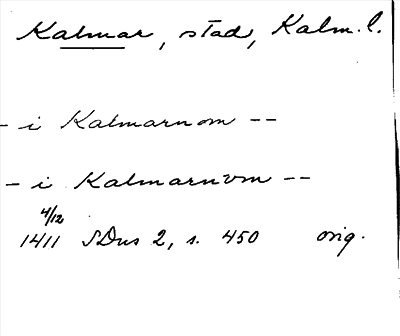 Kalmar, stad, Kalm. l.
– i Kalmarnom – –
– i Kalmarnvm – –
4/12
1411 SDns 2, s. 450 orig.